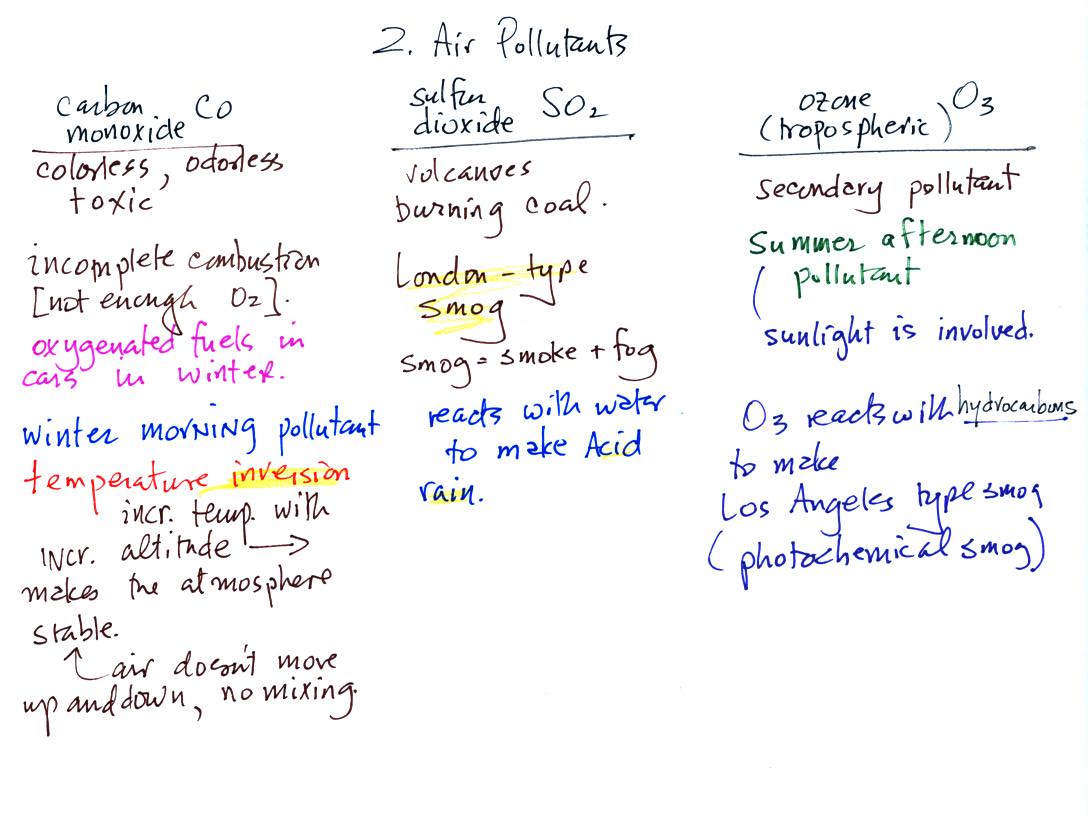 2. Air Pollutants
carbon CO
monoxide
colorless, odorless
toxic
incomplete combustion
[not enough O2].
oxygenated fuels in
cars in winter.
winter morning pollutant
temperature inversion
incr. temp. with
incr. altitude
makes the atmosphere
stable.
air doesn't move
up and down, no mixing.
sulfur
dioxide SO2
volcanoes
burning coal.
London-type
smog
smog = smoke + fog
reacts with water
to make Acid
rain.
ozone
(tropospheric) O3
secondary pollutant
Summer afternoon
pollutant
sunlight is involved.
O3 reacts with hydrocarbons
to make
Los Angeles type smog
(photochemical smog)